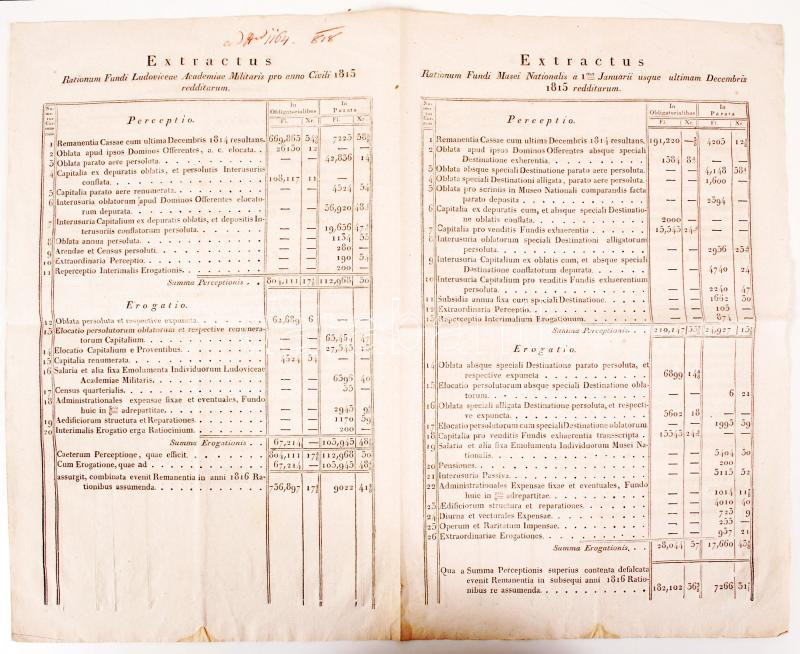 Extractus
Rationum Fundi Ludoviceae Academiae Militaris pro anno Civili 1815
redditarum.
In Obligatorialibus In Parata
Fl. Xr. Fl. Xr.
Perceptio.
1 Remanentia Cassae cum ultima Decembris 1814 resultans. 669,865 7225
2 Oblata apud ipsos Dominos Offerentes, a. c. elocata. 26150 12 — —
3 Oblata parato aere persoluta — — 42,856 14
4 Capitalia ex depuratis oblatis, et persolutis Interusuriis
conflata. 108,117 11 — —
5 Capitalia parato aere remunerata. — — 4524 54
6 Interusuria oblatorum apud Dominos Offerentes elocato-
rum depurata. — — 36,920
7 Interusuria Capitalium ex depuratis oblatis, et depositis In-
terusuriis conflatorum persoluta. — — 19,656
8 Oblata annua persoluta. — — 1134 55
9 Arendae et Census persoluti. — — 280 —
10 Extraordinaria Perceptio. — — 190 54
11 Reperceptio Interimalis Erogationis. — — 200 —
Summa Perceptionis. 804,111 112,968 50
Erogatio.
12 Oblata persoluta et respective expuncta. 62,689 6 — —
13 Elocatio persolutorum oblatorum et respective remunera-
torum Capitalium. — — 65,454 47
14 Elocatio Capitalium e Proventibus. — — 27,545 25
15 Capitalia renumerata. 4524 54 — —
16 Salaria et alia fixa Emolumenta Individuorum Ludoviceae
Academiae Militaris. — — 6596 40
17 Census quarterialis. — — 35 —
18 Administrationales expensae fixae et eventuales, Fundo
huic in adrepartitae. — — 2945
19 Aedificiorum structura et Reparationes. — — 1170 59
20 Interimalis Erogatio erga Ratiocinium. — — 200 —
Summa Erogationis. 67,214 — 103,945
Caeterum Perceptione, quae efficit. 804,111 112,968 50
Cum Erogatione, quae ad 67,214 — 103,945
assurgit, combinata evenit Remanentia in anni 1816 Ra-
tionibus assumenda. 736,897 9022
Extractus
Rationum Fundi Musei Nationalis a 1 Januarii usque ultimam Decembris
1815 redditarum.
In Obligatorialibus In Parata
Fl. Xr. Fl. Xr.
Perceptio.
1 Remanentia Cassae cum ultima Decembris 1814 resultans. 191,220 4205
2 Oblata apud ipsos Dominos Offerentes absque speciali
Destinatione exherentia. 1384 — —
3 Oblata absque speciali Destinatione parato aere persoluta. — — 4,148
4 Oblata speciali Destinationi alligata, parato aere persoluta. — — 1,600 —
5 Oblata pro scriniis in Museo Nationali comparandis facta
parato deposita — — 2394 —
6 Capitalia ex depuratis cum, et absque speciali Destinatio-
ne oblatis conflata. 2000 — —
7 Capitalia pro venditis Fundis exhaerentia. 15,543 — —
8 Interusuria oblatorum speciali Destinationi alligatorum
persoluta. — — 2956
9 Interusuria Capitalium ex oblatis cum, et absque speciali
Destinatione conflatorum depurata. — — 4740 24
10 Interusuria Capitalium pro venditis Fundis exhaerentium
persoluta. — — 2240 47
11 Subsidia annua fixa cum speciali Destinatione. — — 1662 50
12 Extraordinaria Perceptio. — — 105 —
13 Reperceptio Interimalium Erogationum. — — 874 —
Summa Perceptionis. 210,147 24,927
Erogatio.
14 Oblata absque speciali Destinatione parato persoluta, et
respective expuncta 6899 — —
15 Elocatio persolutorum absque speciali Destinatione obla-
torum. — — 6 21
16 Oblata speciali alligata Destinatione persoluta, et respecti-
ve expuncta. 5602 18 — —
17 Elocatio persolutorum cum speciali Destinatione oblatorum. — — 1995 59
18 Capitalia pro venditis Fundis exhaerentia transcripta. 15543 — —
19 Salaria et alia fixa Emolumenta Individuorum Musei Na-
tionalis. — — 5404 50
20 Pensiones. — — 200 —
21 Interusuria Passiva. — — 5115 52
22 Administrationales Expensae fixae et eventuales, Fundo
huic in adrepartitae. — — 1014
23 Ædificiorum structura et reparationes. — — 4010 40
24 Diurna et vecturales Expensae. — — 725 9
25 Operum et Raritatum Impensae. — — 255 —
26 Extraordinariae Erogationes. — — 957 21
Summa Erogationis. 28,044 17,660
Qua a Summa Perceptionis superius contenta defalcata
evenit Remanentia in subsequi anni 1816 Ratio-
nibus re assumenda. 182,102 7266